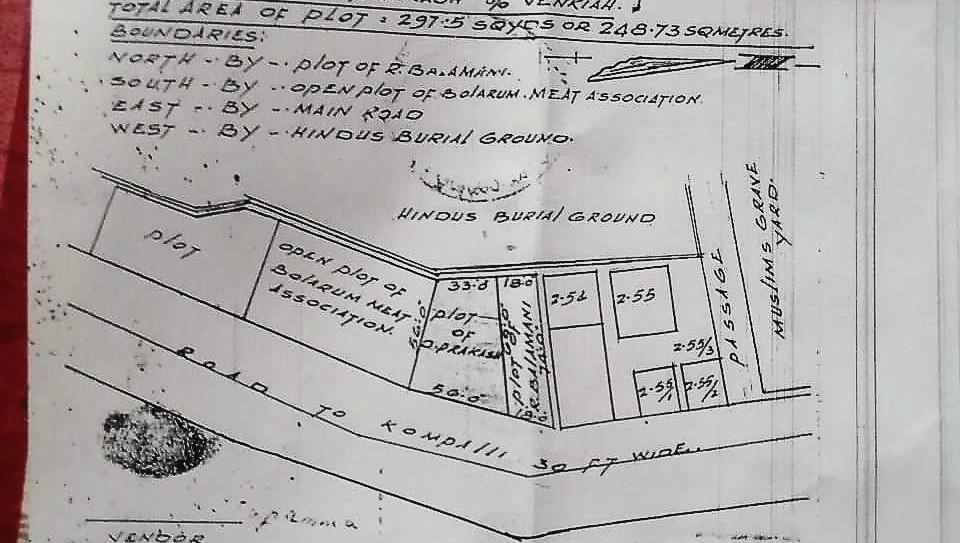 TOTAL AREA OF PLOT : 297.5 SQYDS OR 248.73 SQMETRES.
BOUNDARIES:
NORTH -- BY -- PLOT OF R.BALAMANI.
SOUTH -- BY -- OPEN PLOT OF BOLARUM MEAT ASSOCIATION.
EAST -- BY -- MAIN ROAD
WEST -- BY -- HINDUS BURIAL GROUND.
HINDUS BURIAL GROUND
PLOT
OPEN PLOT OF
BOLARUM MEAT
ASSOCIATION.
33.0
PLOT
OF
56.0
18.0
PLOT OF
R.BALAMANI
2.55
2.55/3
2.55/1
2.55/2
PASSAGE
MUSLIMS GRAVE
YARD.
ROAD TO KOMPALLI 30 FT WIDE..
VENDOR